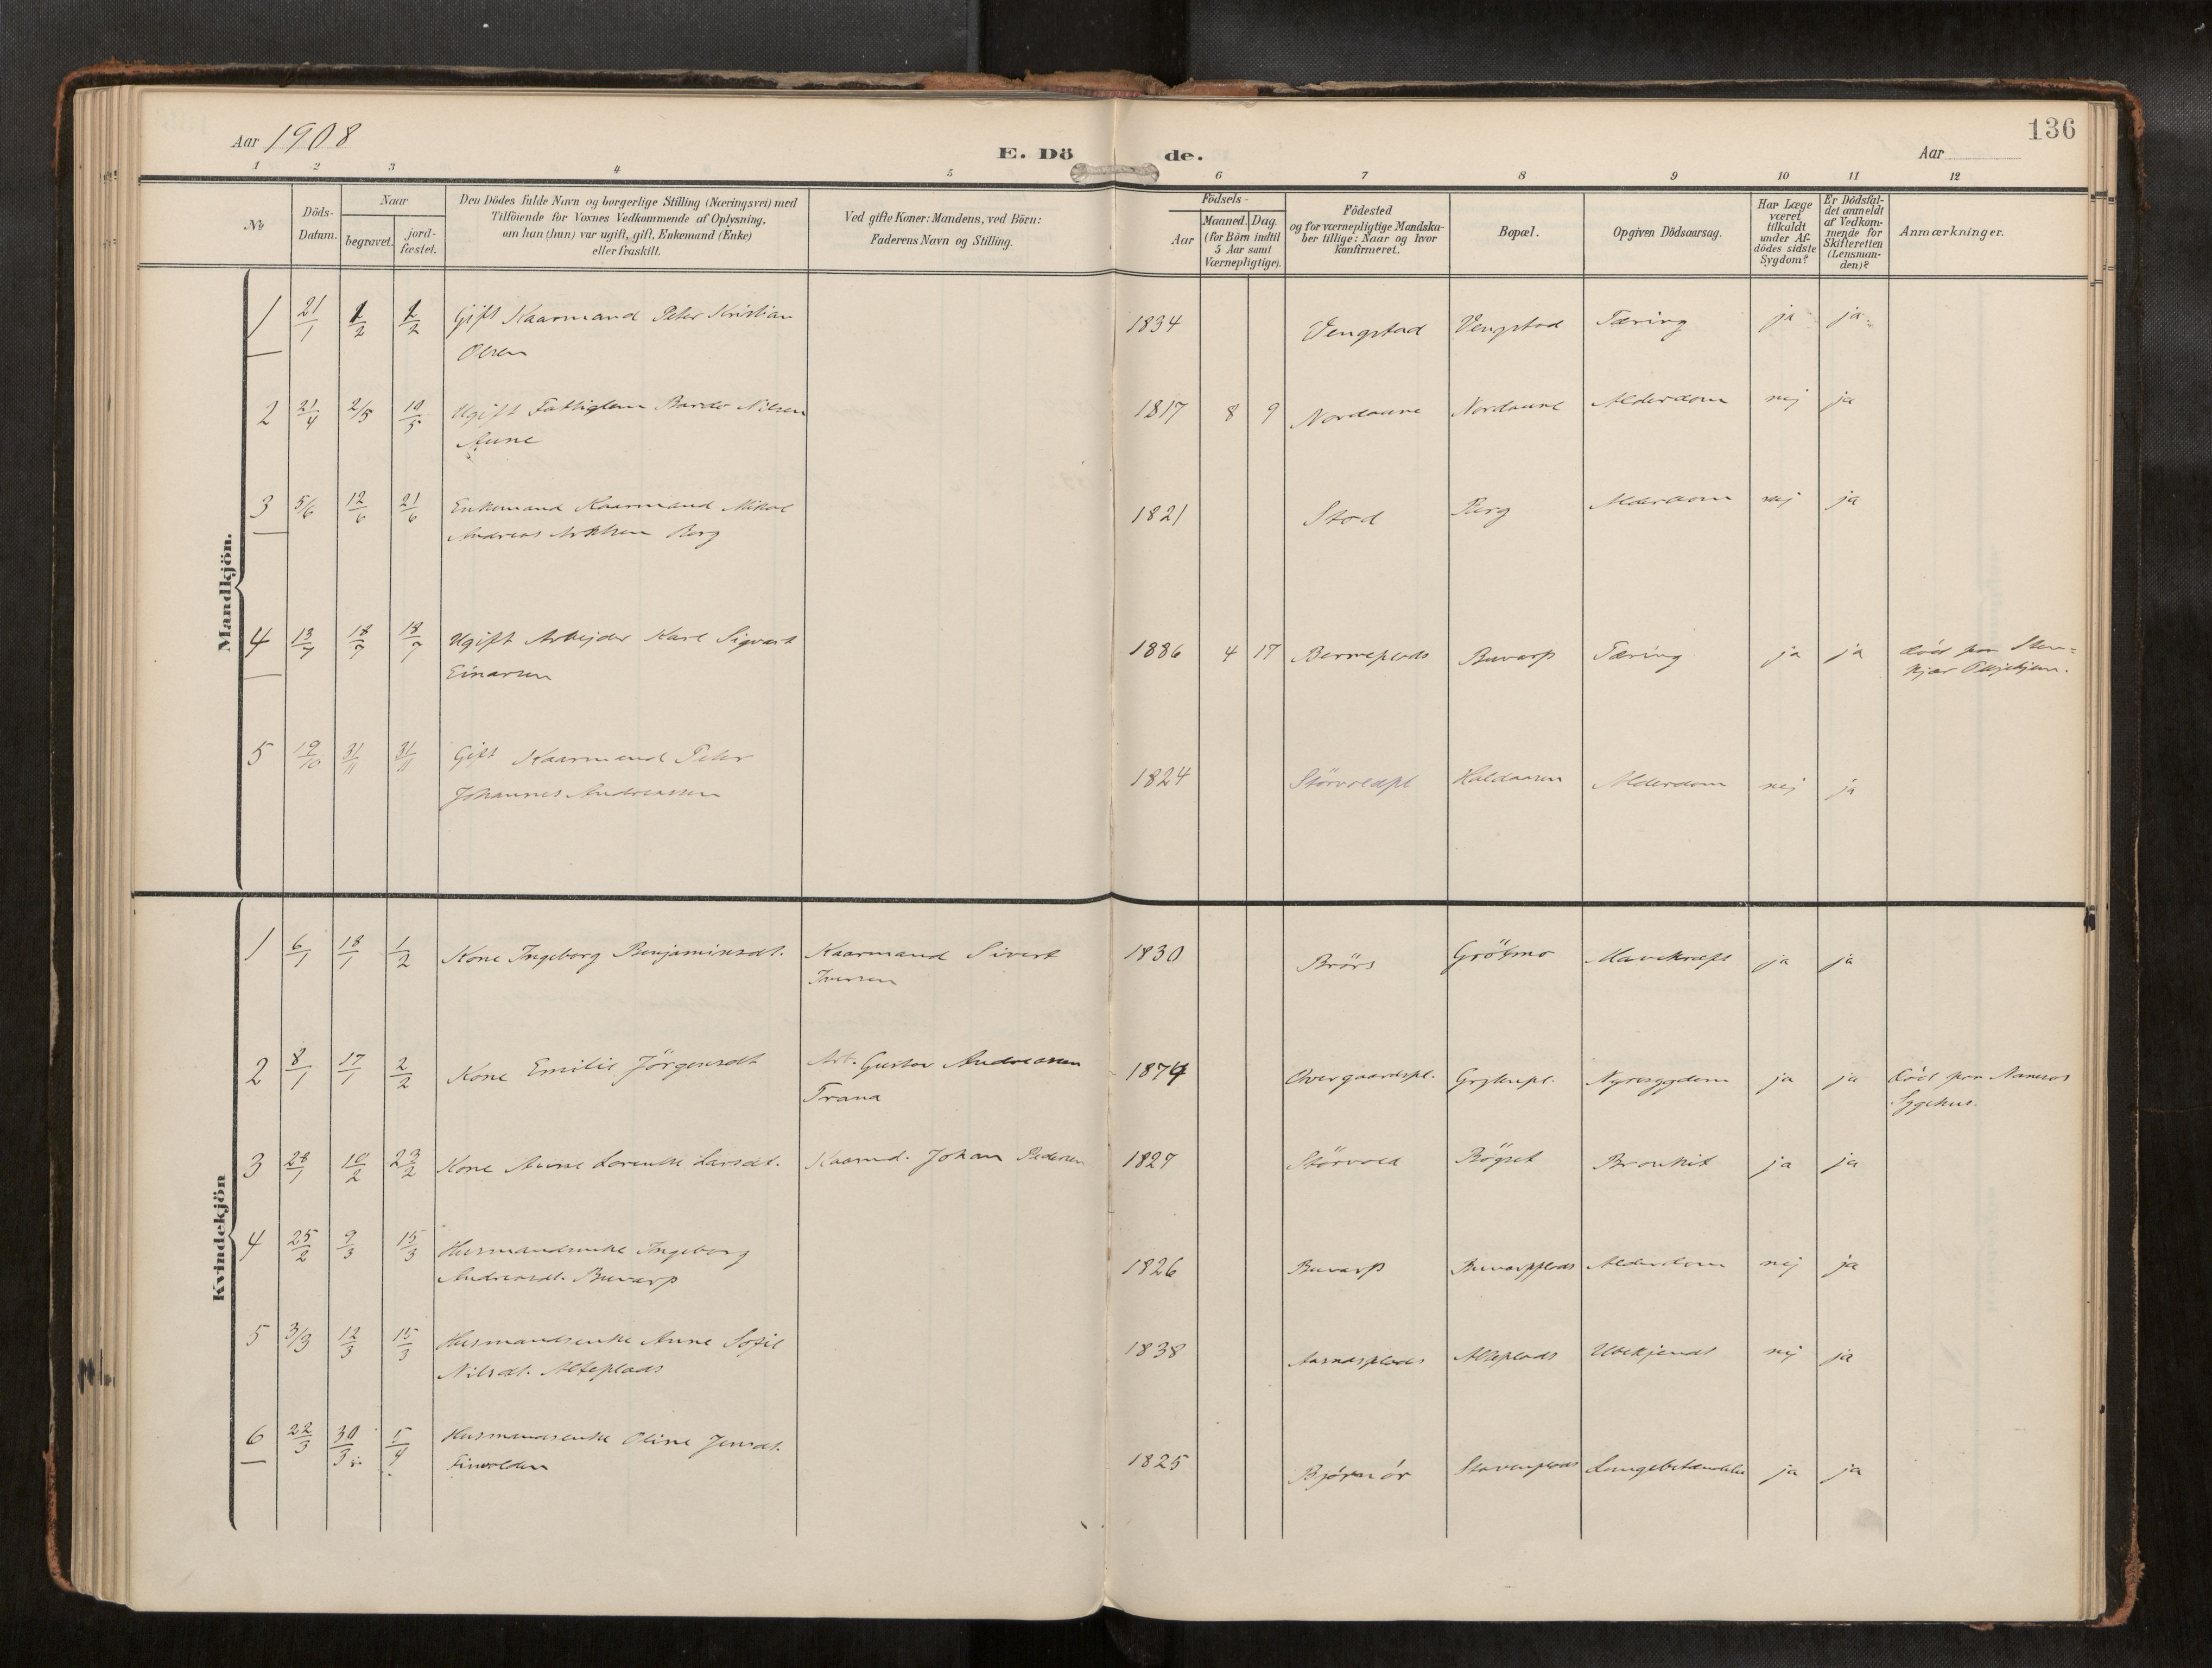 136
Aar 1908
E. Dö de.
Aar
1 2 3 4 5 6 7 8 9 10 11 12
No
Döds-
Datum.
Naar
begravet.
jord-
fæstet.
Den Dödes fulde Navn og borgerlige Stilling (Næringsvei) med
Tilföiende for Voxnes Vedkommende af Oplysning,
om han (hun) var ugift, gift, Enkemand (Enke)
eller fraskilt.
Ved gifte Koner: Mandens, ved Börn:
Faderens Navn og Stilling.
Födsels-
Aar
Maaned. Dag.
(for Börn indtil
5 Aar samt
Værnepligtige).
Födested
og for værnepligtige Mandska-
ber tillige: Naar og hvor
konfirmeret.
Bopæl.
Opgiven Dödsaarsag.
Har Læge
været
tilkaldt
under Af-
dödes sidste
Sygdom?
Er Dödsfal-
det anmeldt
af Vedkom-
mende for
Skifteretten
(Lensman-
den)?
Anmærkninger.
Mandkjön.
1 21/1 1/2 1/2 Gift Kaarmand Peter Kristian 1834 Vengstad Vengstad Tæring ja ja
Olsen
2 21/4 2/5 10/5 Ugift Fattiglem Bardo Nilsen 1817 8 9 Nordaune Nordaune Alderdom nej ja
Aune
3 5/6 12/6 21/6 Enkemand Kaarmand Mikal 1821 Stod Berg Alderdom nej ja
Andreas Berg
4 13/7 18/7 18/7 Ugift Arbejder Karl Sigvart 1886 4 17 Buvarp Tæring ja ja död paa Sten-
Einarsen kjær Plejehjem.
5 19/10 31/11 31/11 Gift Kaarmand Peter
Johannes Andreassen 1824 Störvoldpl Haldaasen Alderdom nej ja
Kvindekjön
1 6/1 18/1 1/2 Kone Ingeborg Benjaminsdt. Kaarmand Sivert 1830 Brörs Mavekræft ja ja
Iversen
2 8/1 17/1 2/2 Kone Emilie Jörgensdt Arb. Gustav Andreassen 1874 Overgaardspl. Nyresygdom ja ja död paa Namsos
Trana Sygehus.
3 28/1 10/2 23/2 Kone Anne Lorentse Larsdt. Kaarmd. Johan Pedersen 1827 Störvold Bögset Bronkit ja ja
4 25/2 9/3 15/3 Husmandsenke Ingeborg 1826 Buvarp Buvarpplads Alderdom nej ja
Andreasdt. Buvarp
5 3/3 12/3 15/3 Husmandsenke Anne Sofie 1838 Aasnasplads Alteplads Ubekjendt nej ja
Nilsdt. Alteplads
6 22/3 30/3 5/4 Husmandsenke Oline Jensdt. 1825 Björnör Stavenplads Lungebetændelse ja ja
Finvolden